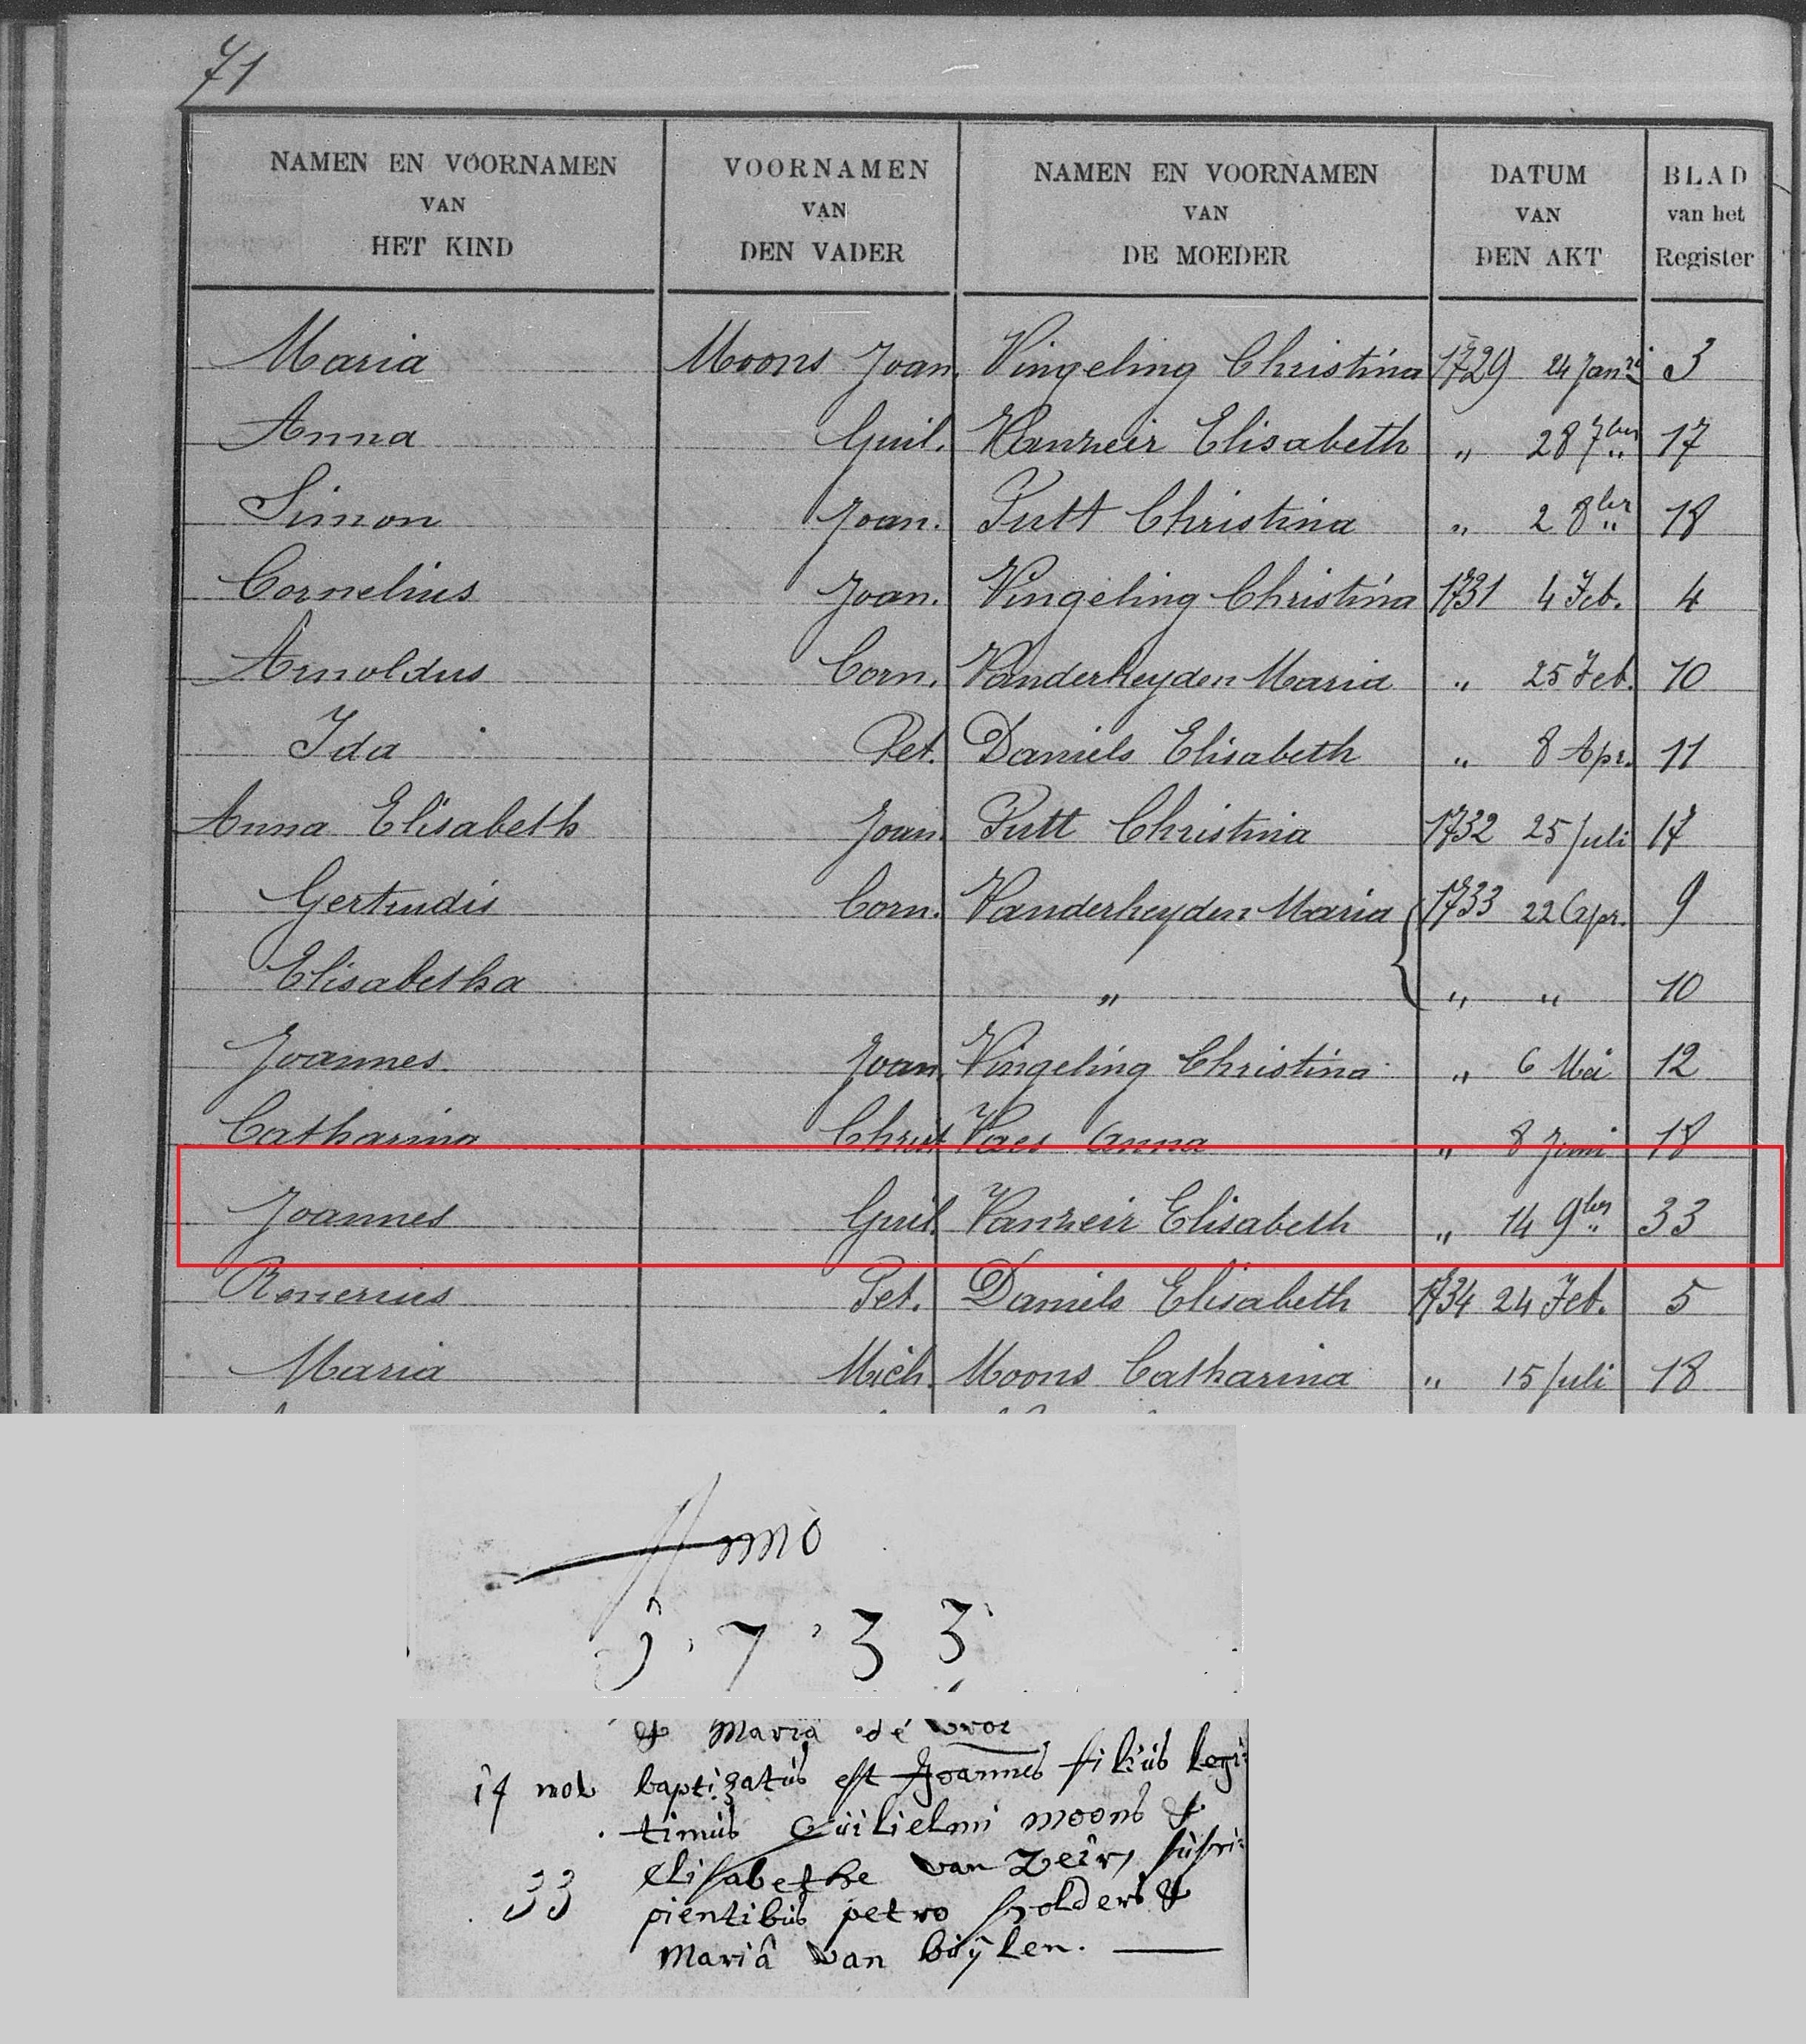 71
NAMEN EN VOORNAMEN VAN HET KIND
VOORNAMEN VAN DEN VADER
NAMEN EN VOORNAMEN VAN DE MOEDER
DATUM VAN DEN AKT
BLAD van het Register
Maria Moons Joan. Vingeling Christina 1729 24 Jan.ri 3
Anna Guil. Vanzeir Elisabeth „ 28 7ber 17
Simon Joan. Putt Christina „ 2 8ber 18
Cornelius Joan. Vingeling Christina 1731 4 Feb. 4
Arnoldus Corn. Vanderheyden Maria „ 25 Feb. 10
Ida Pet. Daniels Elisabeth „ 8 Apr. 11
Anna Elisabeth Joan. Putt Christina 1732 25 Juli 17
Gertrudis Corn. Vanderheyden Maria 1733 22 Apr. 9
Elisabetha „ „ „ 10
Joannes Joan. Vingeling Christina „ 6 Mei 12
Catharina Christ. Vaes Anna „ 8 Juni 18
Joannes Guil. Vanzeir Elisabeth „ 14 9ber 33
Renerius Pet. Daniels Elisabeth 1734 24 Feb. 5
Maria Mich. Moons Catharina „ 15 Juli 18
Anno
1733
& Maria de
14 nob baptizatus est Joannes filius legi-
timus Guilielmi moons &
Elisabethe van Zeir, suscri-
33 pientibus petro Scolders &
Mariâ van buÿlen.